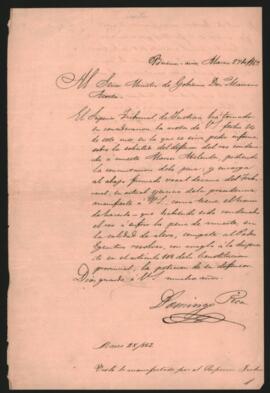 Buenos aires Marzo 27 de 1863
Al Señor Ministro de Gobierno Don Mariano
Acosta
El Superior Tribunal de Justicia ha tomado
en consideracion la nota de V.S. fecha
de este mes en la que se sirve pedir informe
sobre la solicitud del defensor del reo conde-
nado á muerte Marcos, pidiendo
la conmutacion de la pena; y encarga
al abajo firmado vocal decano del Tribu-
nal, en actual ejercicio de la presidencia
manifieste á V.S. como tiene el honor
de hacerlo que habiendo sido condenado
el reo á sufrir la pena de muerte en
la calidad de aleve, compete al Poder
Ejecutivo resolver, con arreglo á la dispues-
to en el articulo 108 de la Constitucion
provincial, la peticion de su defensor.
Dios guarde á V.S. muchos años.
Domingo Pica
Marzo 28/863.
Visto lo manifestado por el Superior Tribu